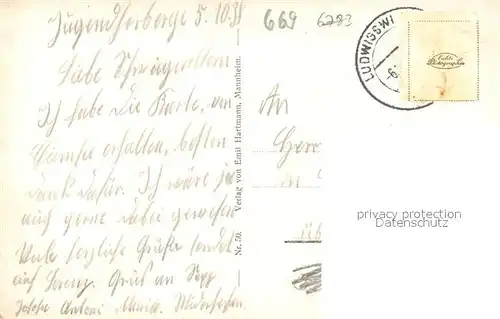 Jugendherberge 5.10.3
669 6283
LUDWIGSWI
Echte
Photographie
Liebe Schwiegereltern
Ich habe die Karte, vom
Chiemsee erhalten, besten
Dank dafür. Ich wäre ja
auch gerne dabei gewesen
Viele herzliche Grüße sendet
euch Lorenz. Gruß an Sepp
Antoni Maria. Wiedersehen.
Nr. 50. Verlag von Emil Hartmann, Mannheim.
An
Herr
in
privacy protection
Datenschutz